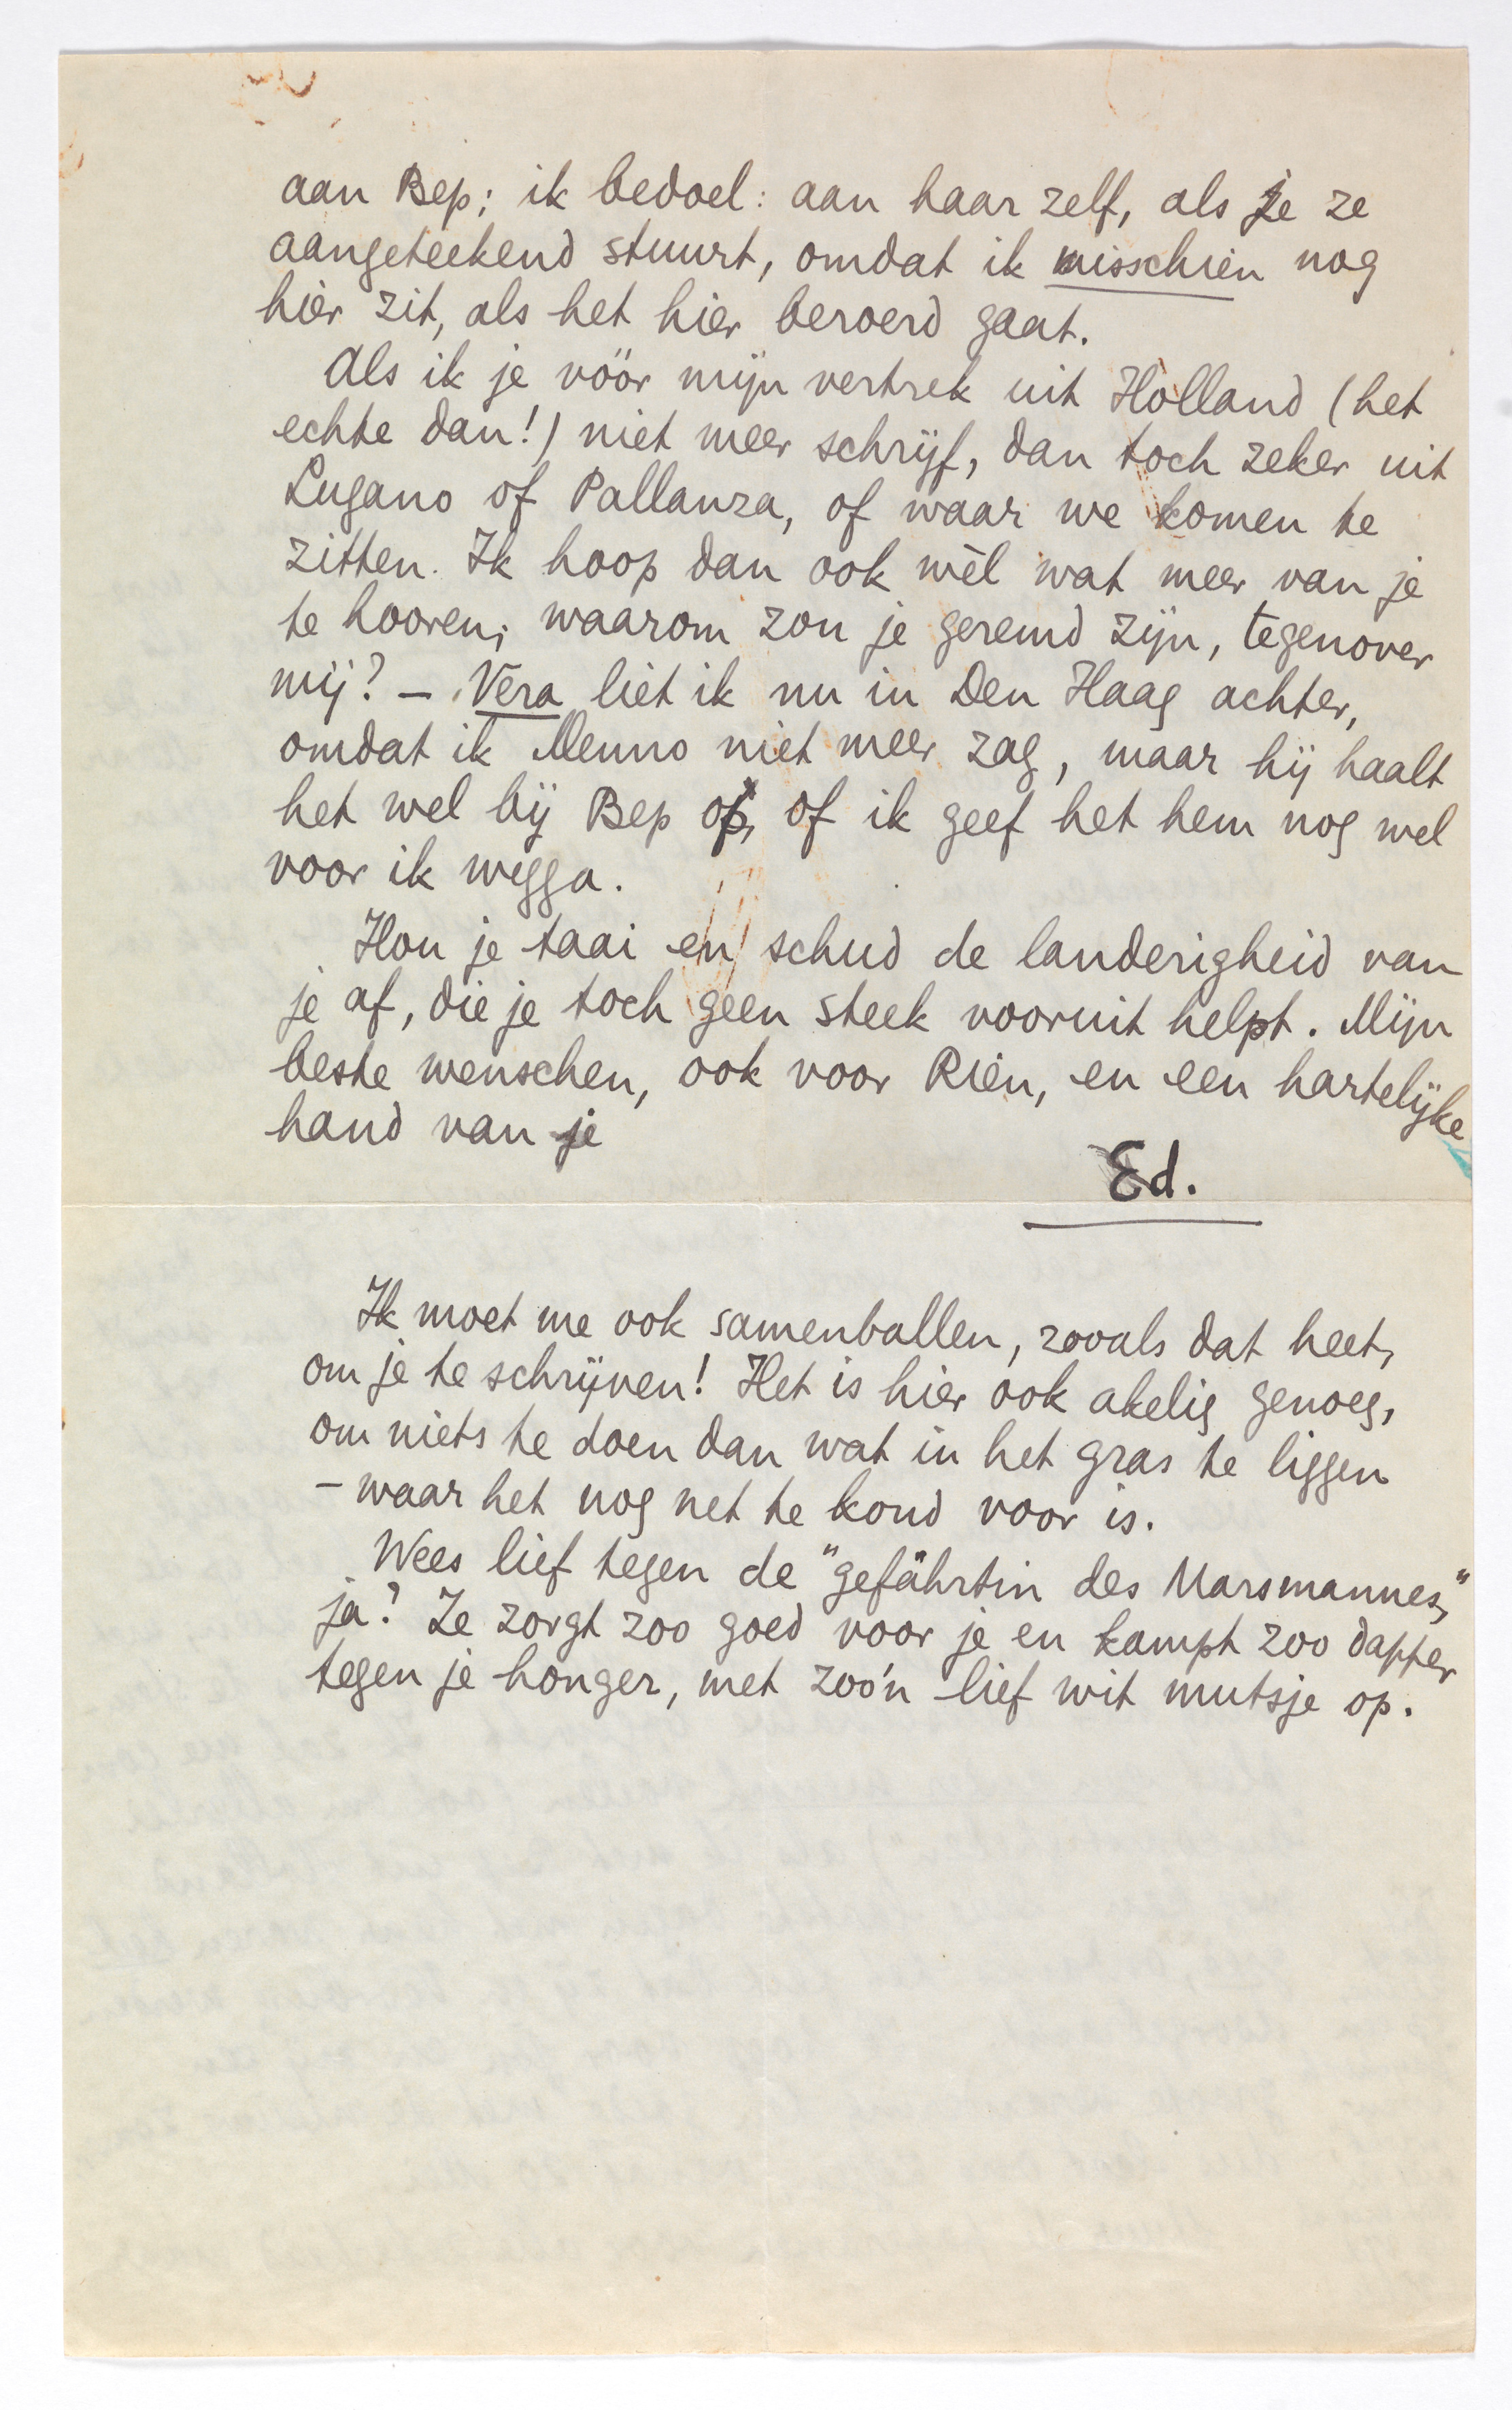 aan Bep; ik bedoel: aan haar zelf, als je ze
aangeteekend stuurt, omdat ik misschien nog
hier zit, als het hier beroerd gaat.
Als ik je vóór mijn vertrek uit Holland (het
echte dan!) niet meer schrijf, dan toch zeker uit
Lugano of Pallanza, of waar we komen te
zitten. Ik hoop dan ook wèl wat meer van je
te hooren; waarom zou je geremd zijn, tegenover
mij? – Vera liet ik nu in Den Haag achter,
omdat ik Menno niet meer zag, maar hij haalt
het wel bij Bep op, of ik geef het hem nog wel
voor ik wegga.
Hou je taai en schud de landerigheid van
je af, die je toch geen steek vooruit helpt. Mijn
beste wenschen, ook voor Rien, en een hartelijke
hand van je
Ed.
Ik moet me ook samenballen, zooals dat heet,
om je te schrijven! Het is hier ook akelig genoeg,
om niets te doen dan wat in het gras te liggen
– waar het nog net te koud voor is.
Wees lief tegen de "gefährtin des Marsmannes,"
ja? Ze zorgt zoo goed voor je en kampt zoo dapper
tegen je honger, met zoo'n lief wit mutsje op.